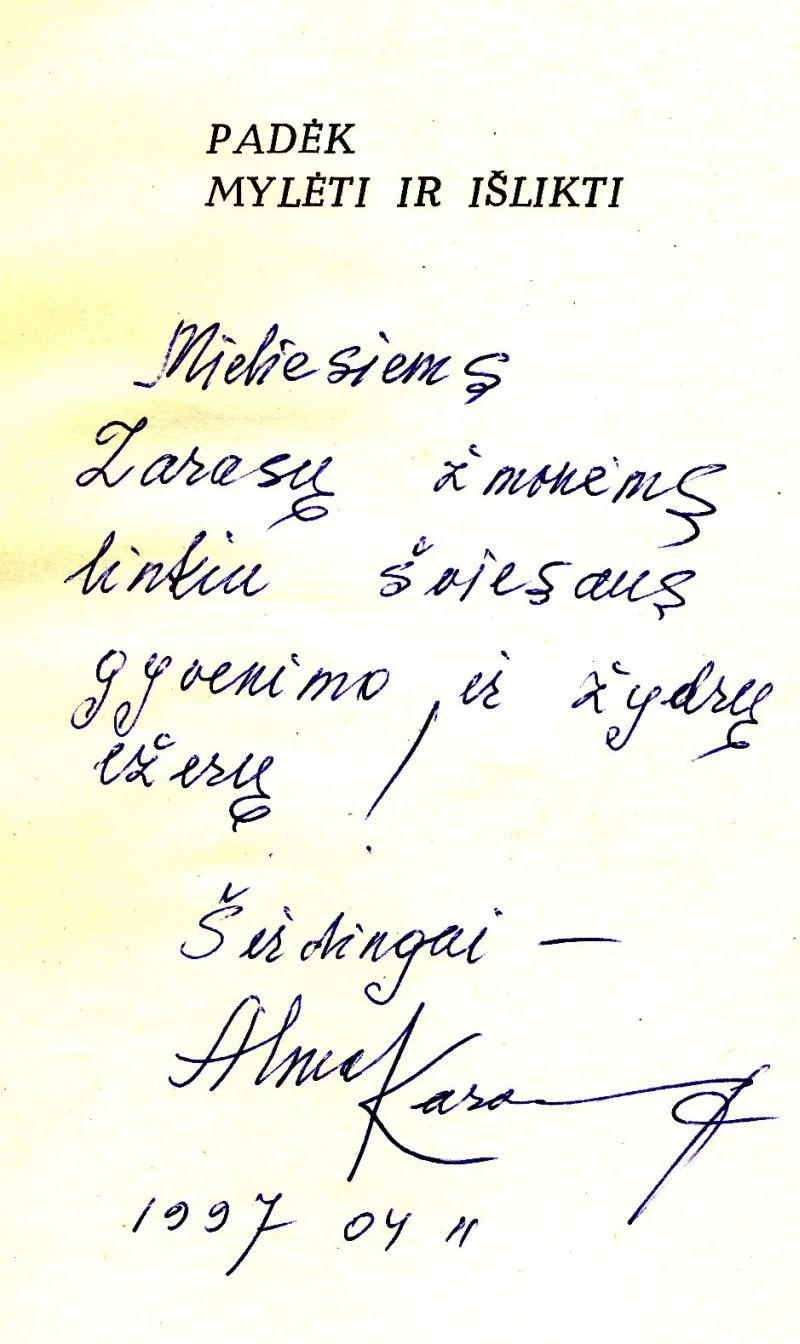 PADĖK
MYLĖTI IR IŠLIKTI
Mieliesiems
Zarasų žmonėms
linkiu šviesaus
gyvenimo ir žydrų
ežerų!
Širdingai —
Alma Karo
1997 04 11